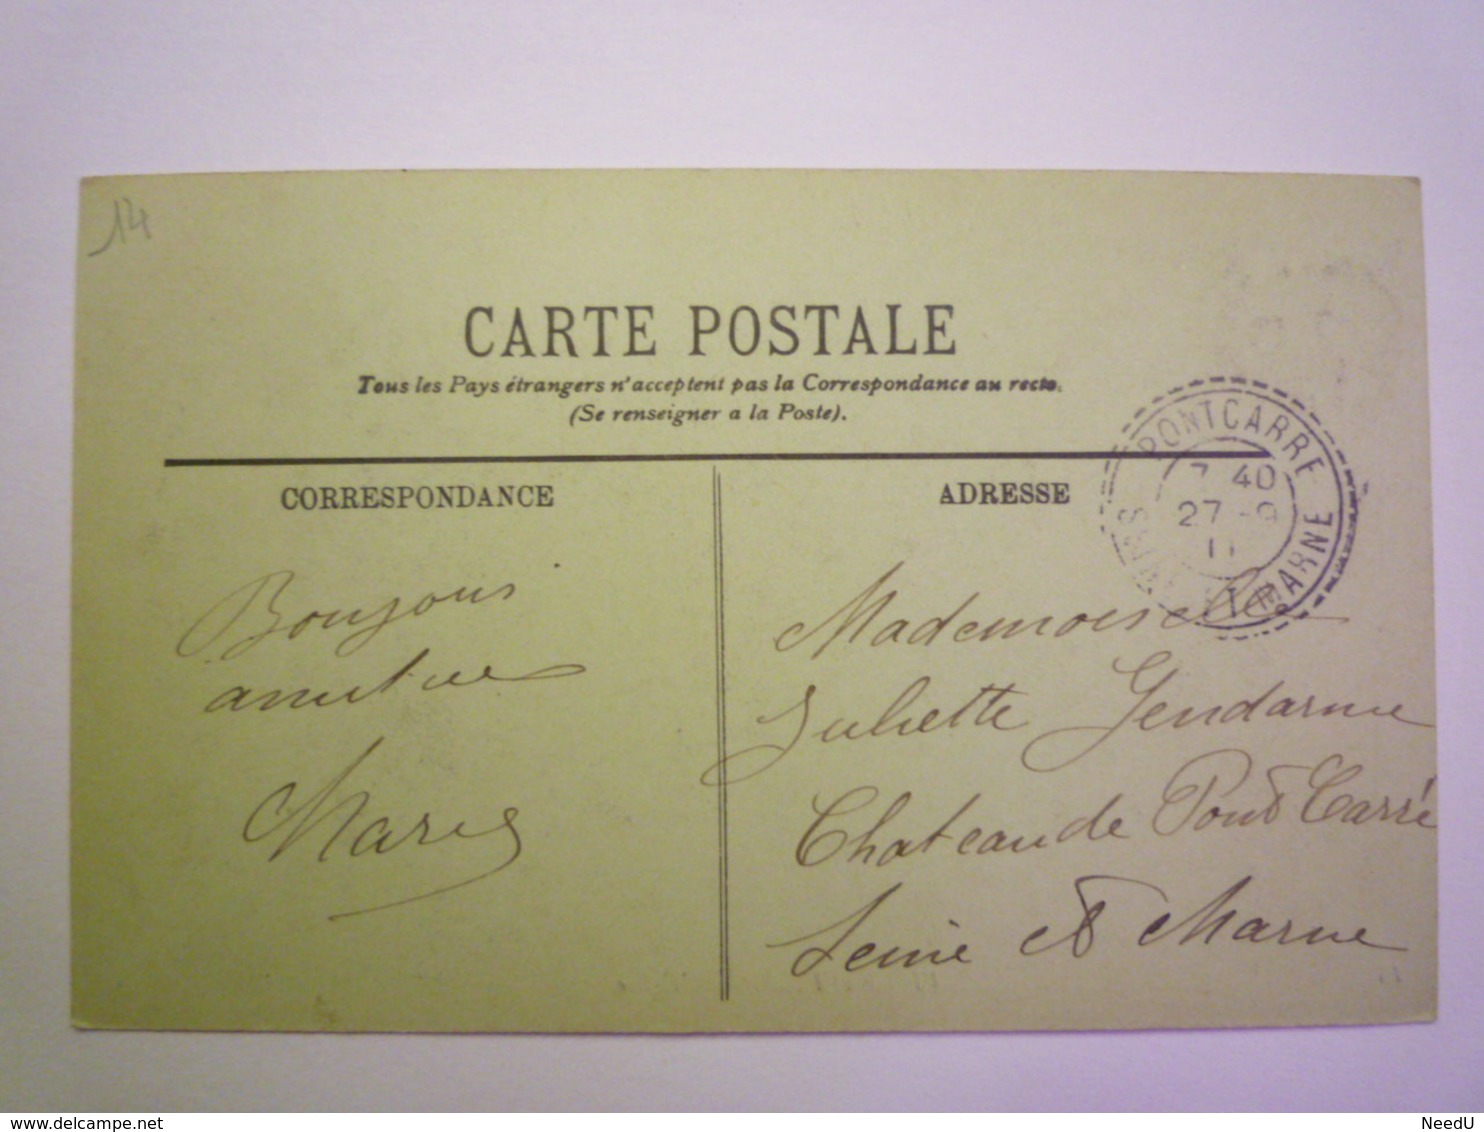 14
CARTE POSTALE
Tous les Pays étrangers n'acceptent pas la Correspondance au recto.
(Se renseigner a la Poste).
CORRESPONDANCE
Bonjour
amitiee
Marie
ADRESSE
PONTCARRE
7 40
27 -9
11
SEINE ET MARNE
Mademoiselle
Juliette Gendarme
Chateau de Pont Carré
Seine et Marne
delcampe.net
NeedU